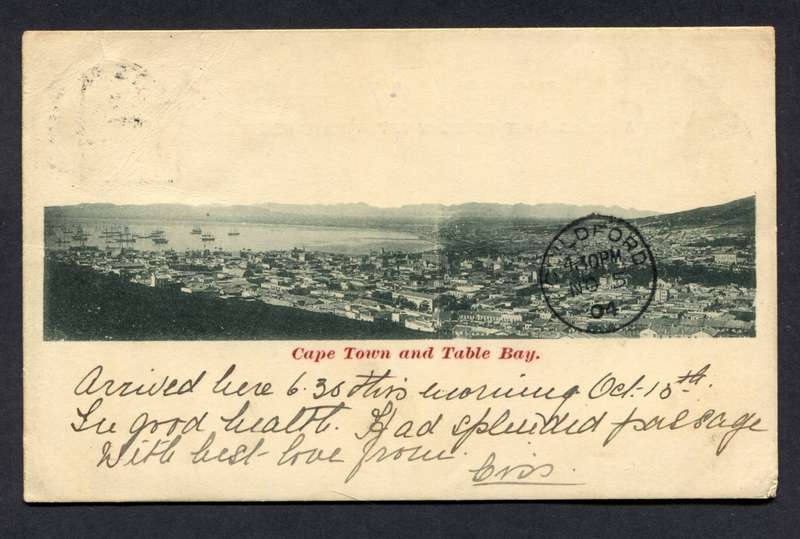 GUILDFORD
4.30PM
NO 5
04
Cape Town and Table Bay.
Arrived here 6.30 this morning Oct. 18th.
In good health. Had splendid passage
With best love from